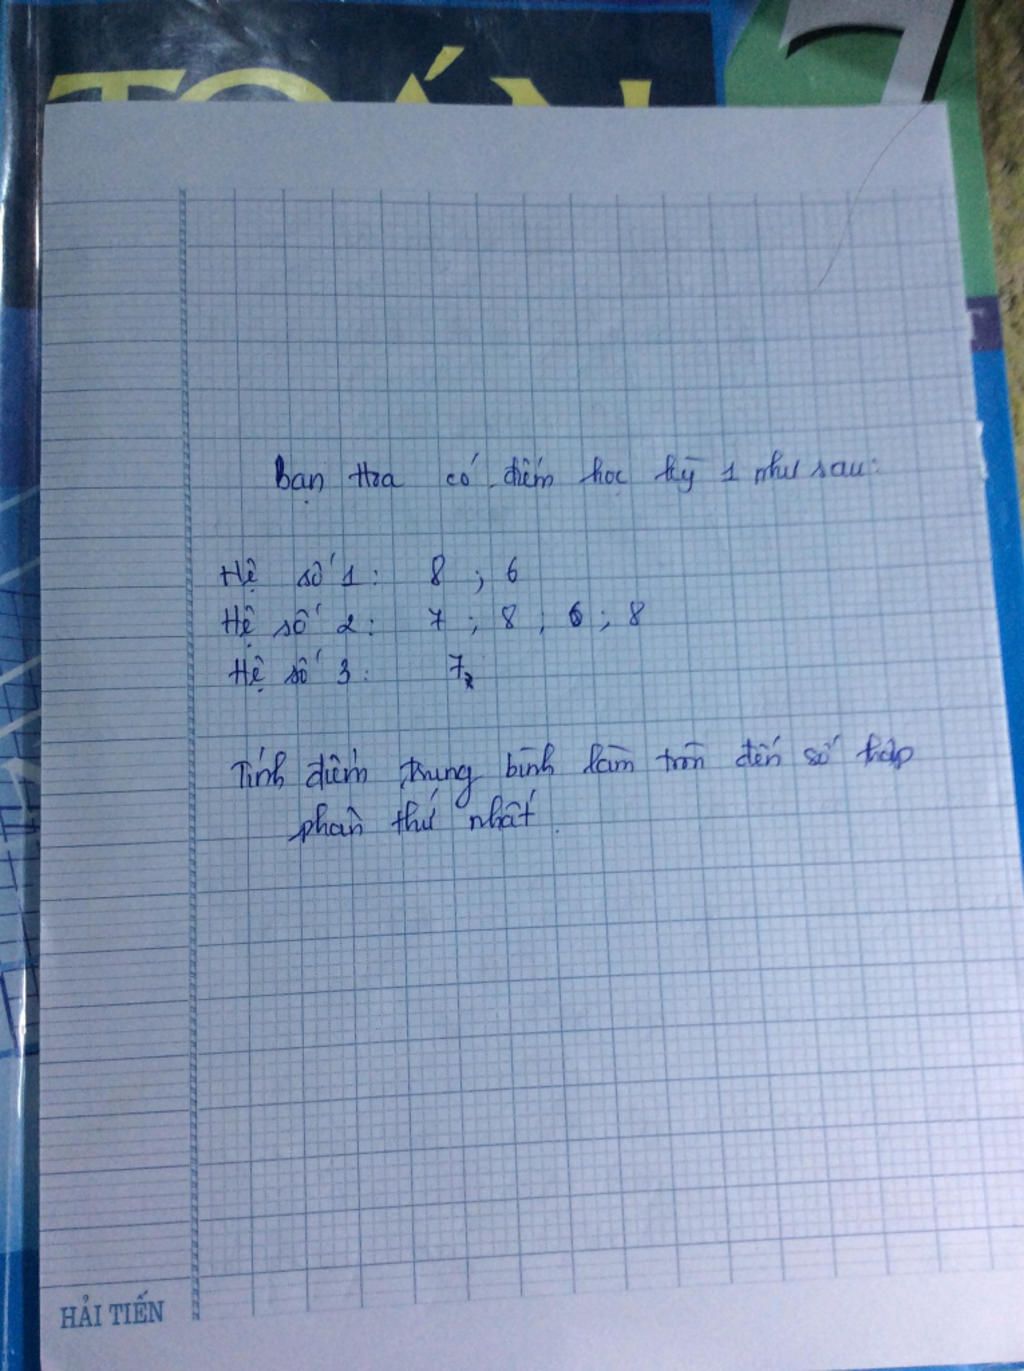 TOÁN 7
Bạn Hoa có điểm học kỳ 1 như sau:
Hệ số 1: 8 ; 6
Hệ số 2: 7 ; 8 ; 6 ; 8
Hệ số 3: 7
Tính điểm trung bình làm tròn đến số thập
phân thứ nhất.
HẢI TIẾN